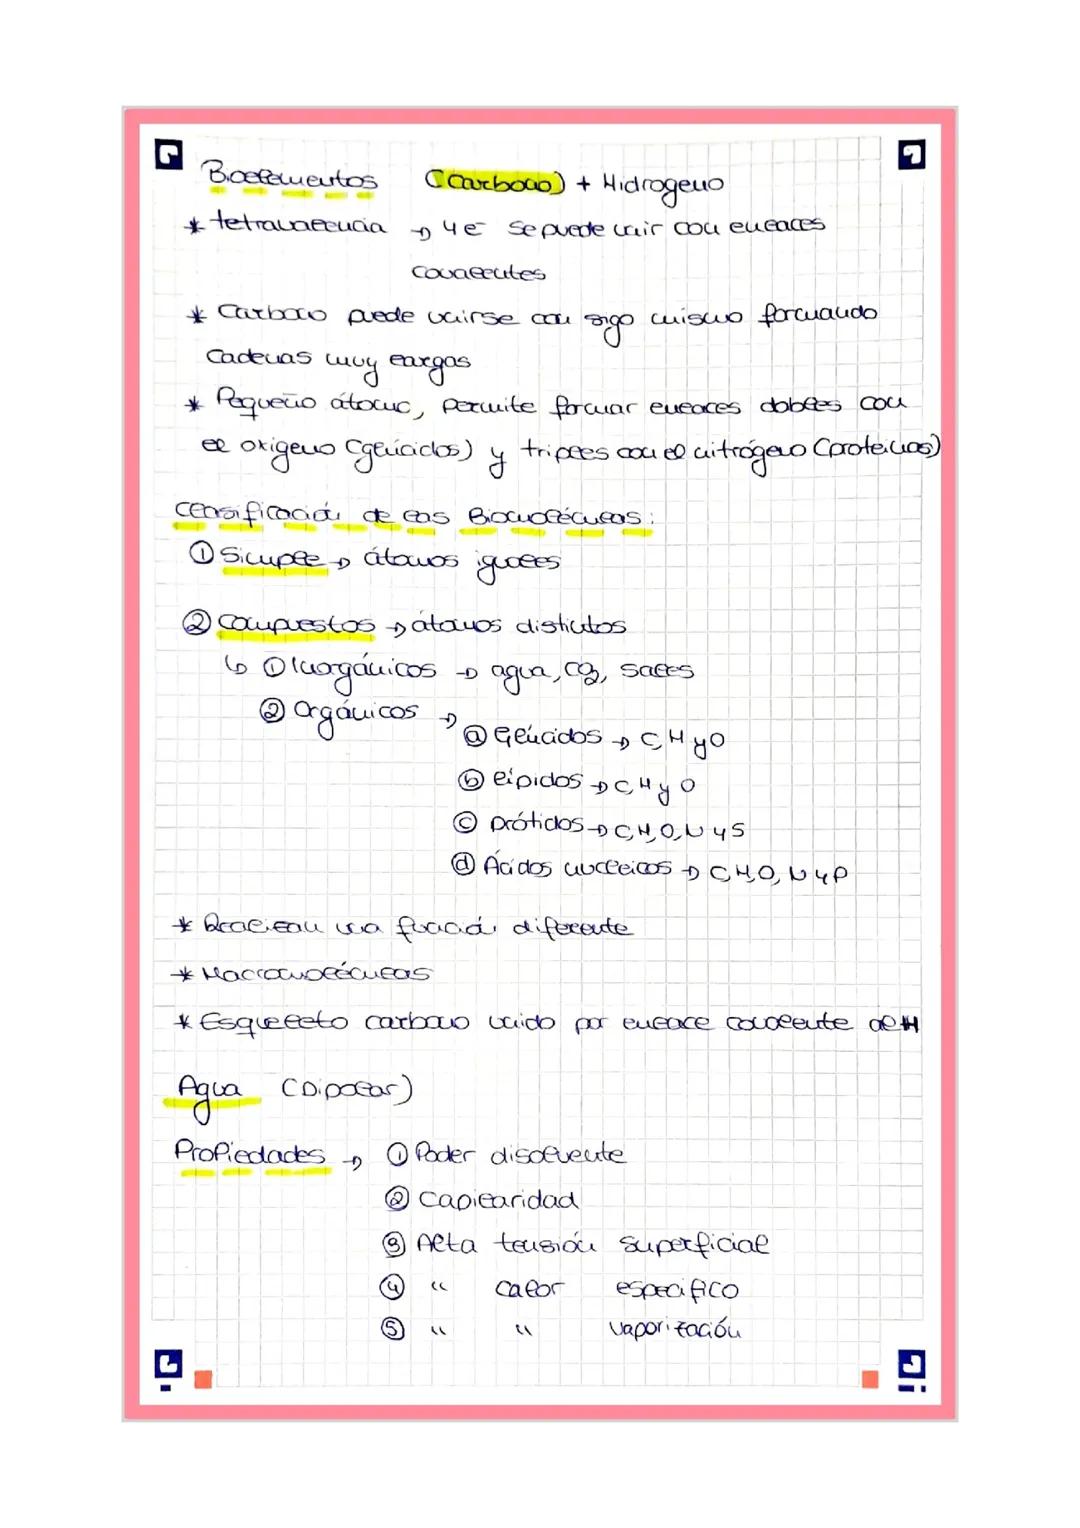 Bioelementos (Carbono) + Hidrogeno
* tetravalencia → 4e⁻ se puede unir con enlaces
covalentes
* Carbono puede unirse con sigo mismo formando
cadenas muy largas
* Pequeño átomo, permite formar enlaces dobles con
el oxigeno (glúcidos) y triples con el nitrógeno (proteinas)
Clasificación de las Biomoléculas:
① Simple → átomos iguales
② Compuestos → átomos distintos
↳ ① Inorgánicos → agua, CO2, sales
② Orgánicos →
ⓐ Glúcidos → C, H y O
ⓑ lípidos → C, H y O
ⓒ prótidos → C, H, O, N y S
ⓓ Ácidos nucleicos → C, H, O, N y P
* Realizan una función diferente
* Macromoléculas
* Esqueleto carbono unido por enlace covalente al H
Agua (Dipolar)
Propiedades → ① Poder disolvente
② Capilaridad
③ Alta tensión superficial
④ " calor especifico
⑤ " " vaporización